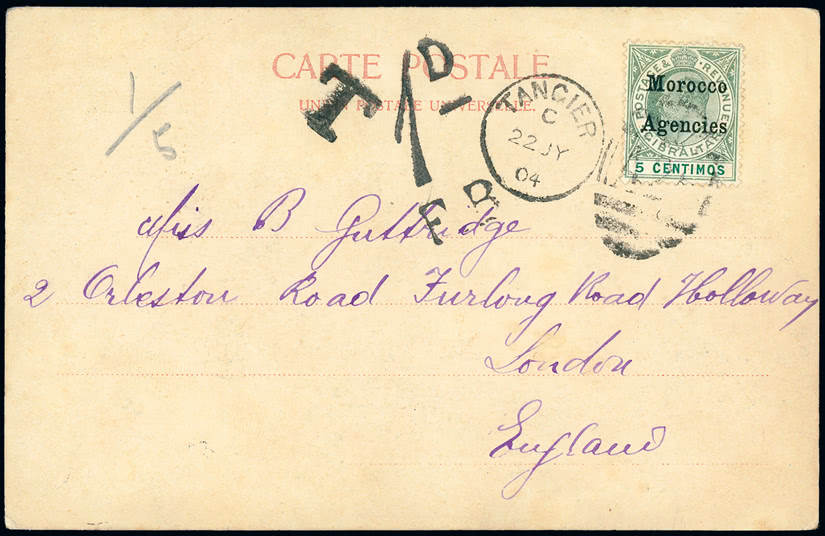 CARTE POSTALE
UNION POSTALE UNIVERSELLE.
1/5
T
1D
TANGIER
C
22 JY
04
POSTAGE & REVENUE
GIBRALTAR
Morocco
Agencies
5 CENTIMOS
Miss B Guttridge
2 Orleston Road Furlong Road Holloway
London
England